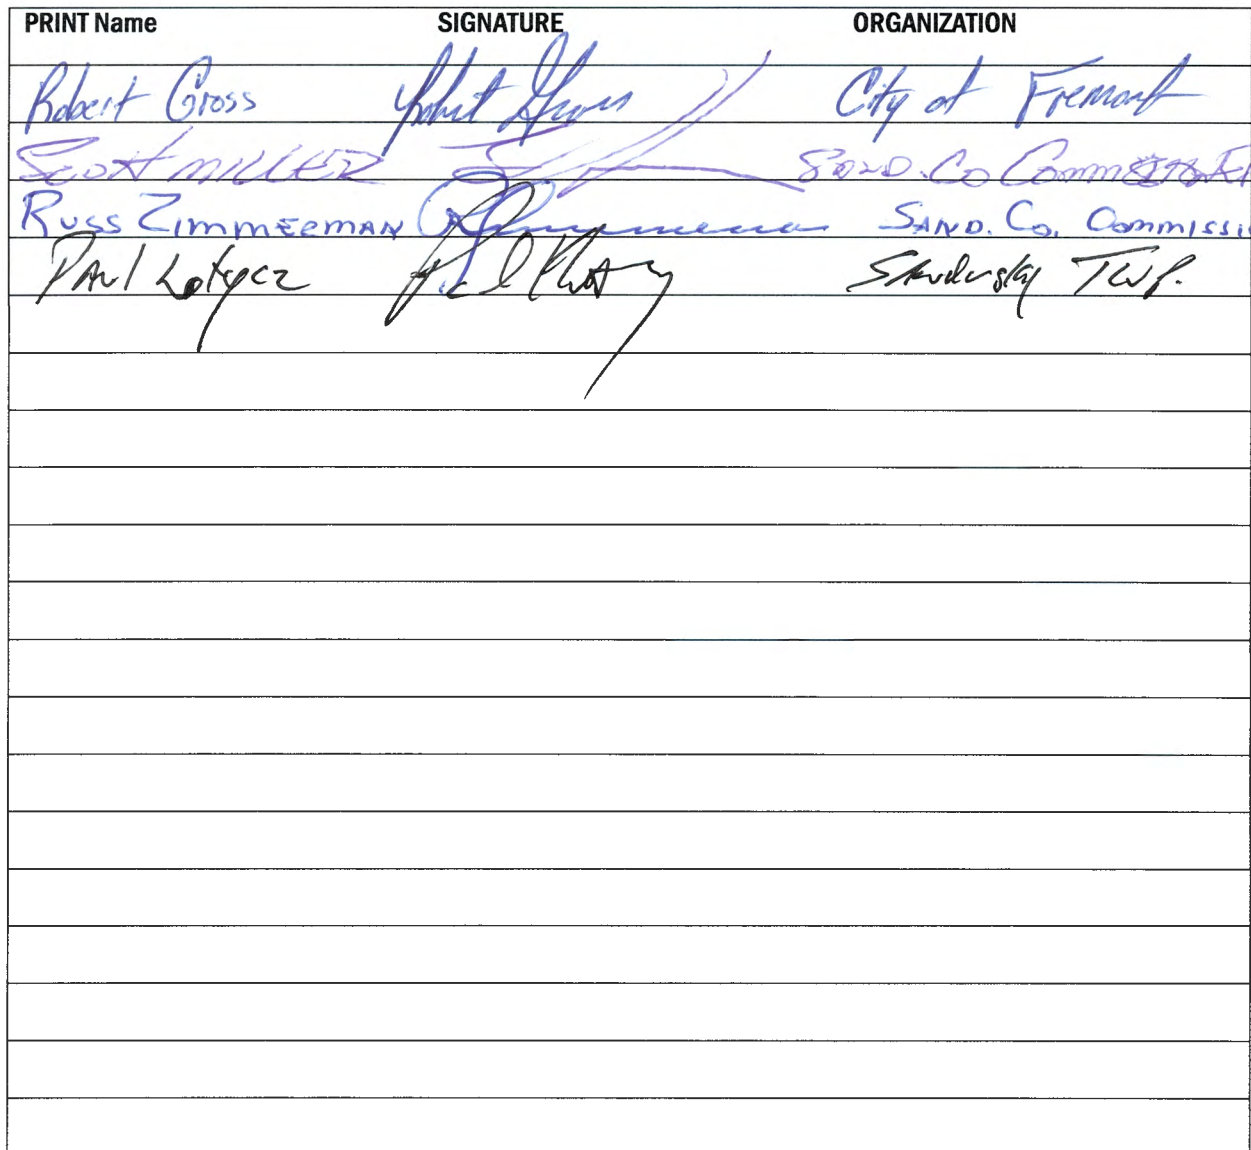 PRINT Name SIGNATURE ORGANIZATION
Robert Gross Robert Gross City of Fremont
Scott MILLER SAND. Co Commissioner
Russ Zimmerman SAND. Co. Commissi
Paul Sandusky TWP.